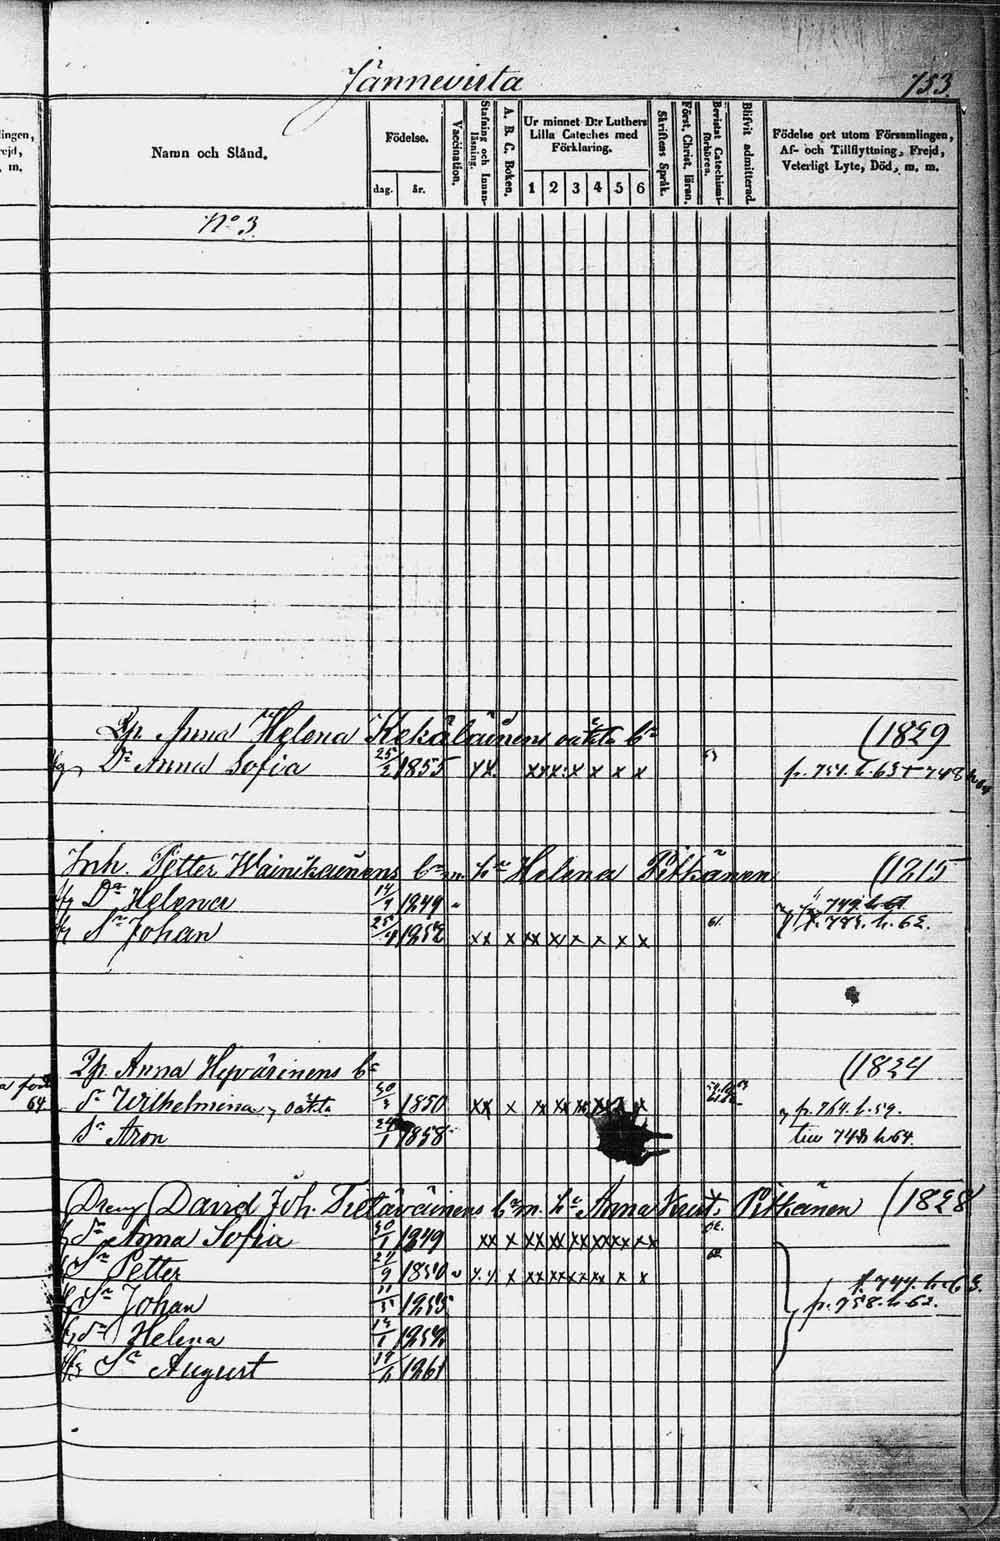 Jännevirta 753.
lingen,
rejd,
m.
Namn och Stånd.
Födelse.
dag. år.
Vaccination.
Stafning och Innanläsning.
A. B. C. Boken.
Ur minnet D:r Luthers Lilla Cateches med Förklaring.
1 2 3 4 5 6
Skriftens Språk.
Först. Christ. läran.
Bevistat Catechismiförhören.
Blifvit admitterad.
Födelse ort utom Församlingen, Af- och Tillflyttning, Frejd, Veterligt Lyte, Död, m. m.
No 3.
Qp. Anna Helena Kekäläinens oäkta bn (1829
Dr Anna Sofia 25/2 1855 x x. x x x x x x x 63 p. 751. h. 63 + 748 h 64
Inh. Petter Wainikainens bn m. h. Helena Pitkänen (1215
Dr Helena 14/9 1249 749. h 61
Sn Johan 25/4 1252 x x x x x x x x x x 61. p. 775. h. 62.
Qp. Anna Hyvärinens bn (1824
64 dr Wilhelmina, oäkta 30/3 1850 x x x x x x x x x x p. 764. h. 59.
Sn Aron 24/1 1858 till 748 h 64.
Dreng David Joh. Tiettäväinens bn m. hu Anna Krist. Pitkänen (1828
dr Anna Sofia 30/1 1249 x x x x x x x x x x x x x 62.
Sn Petter 21/9 1850 x x x x x x x x x x x 62
Sn Johan 11/5 1255 p. 744. h. 63.
p. 758. h 62.
dr Helena
Sn August 19/6 1261